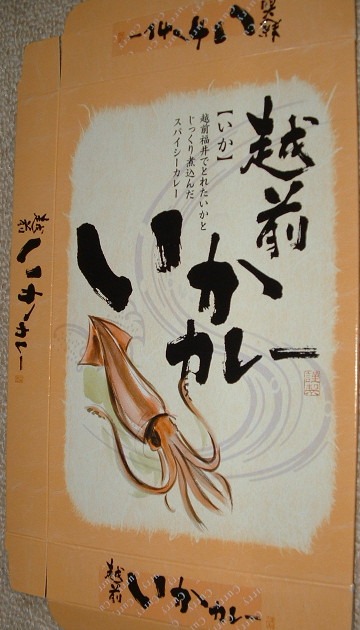 越前
いかカレー
【いか】
越前福井でとれたいかと
じっくり煮込んだ
スパイシーカレー
謹製
越前
いかカレー
越前
いかカレー
越前
いかカレー